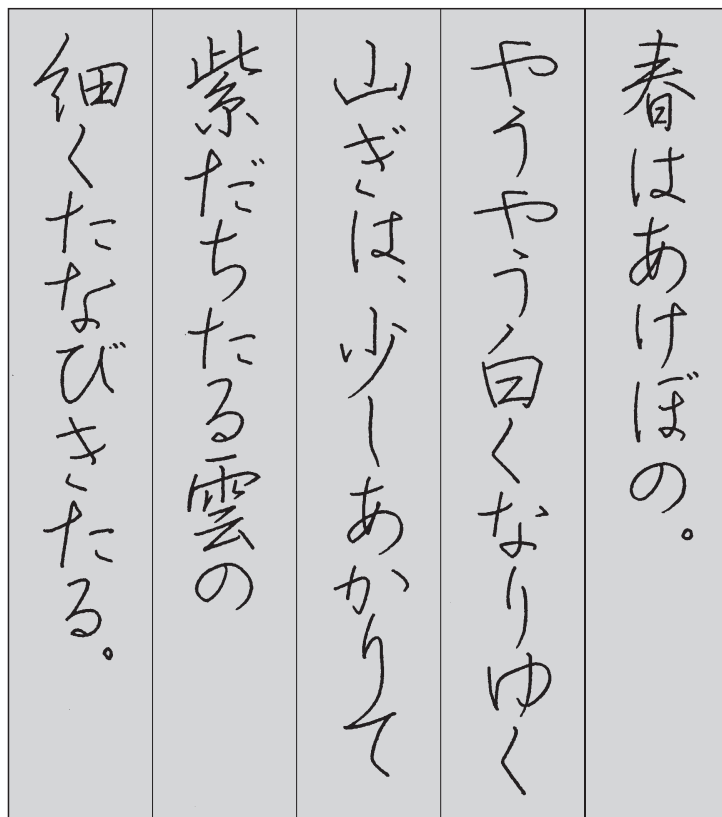 春はあけぼの。
やうやう白くなりゆく
山ぎは、少しあかりて
紫だちたる雲の
細くたなびきたる。